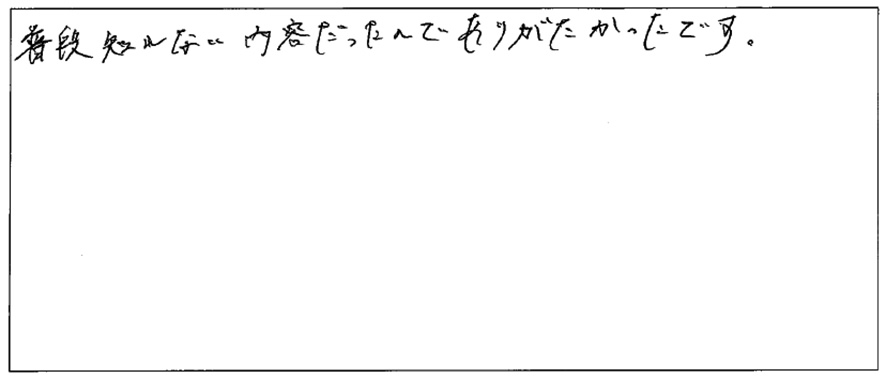 普段知れない内容だったんでありがたかったです。